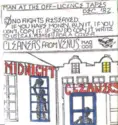 MAN AT THE OFF-LICENCE TAPES
DEC '82
NO RIGHTS RESERVED.
IF YOU HAVE MONEY, BUY IT, IF YOU
DON'T, COPY IT. IF YOU DO COPY IT WRITE
CLEANERS FROM VENUS
MIDNIGHT
CLEANERS